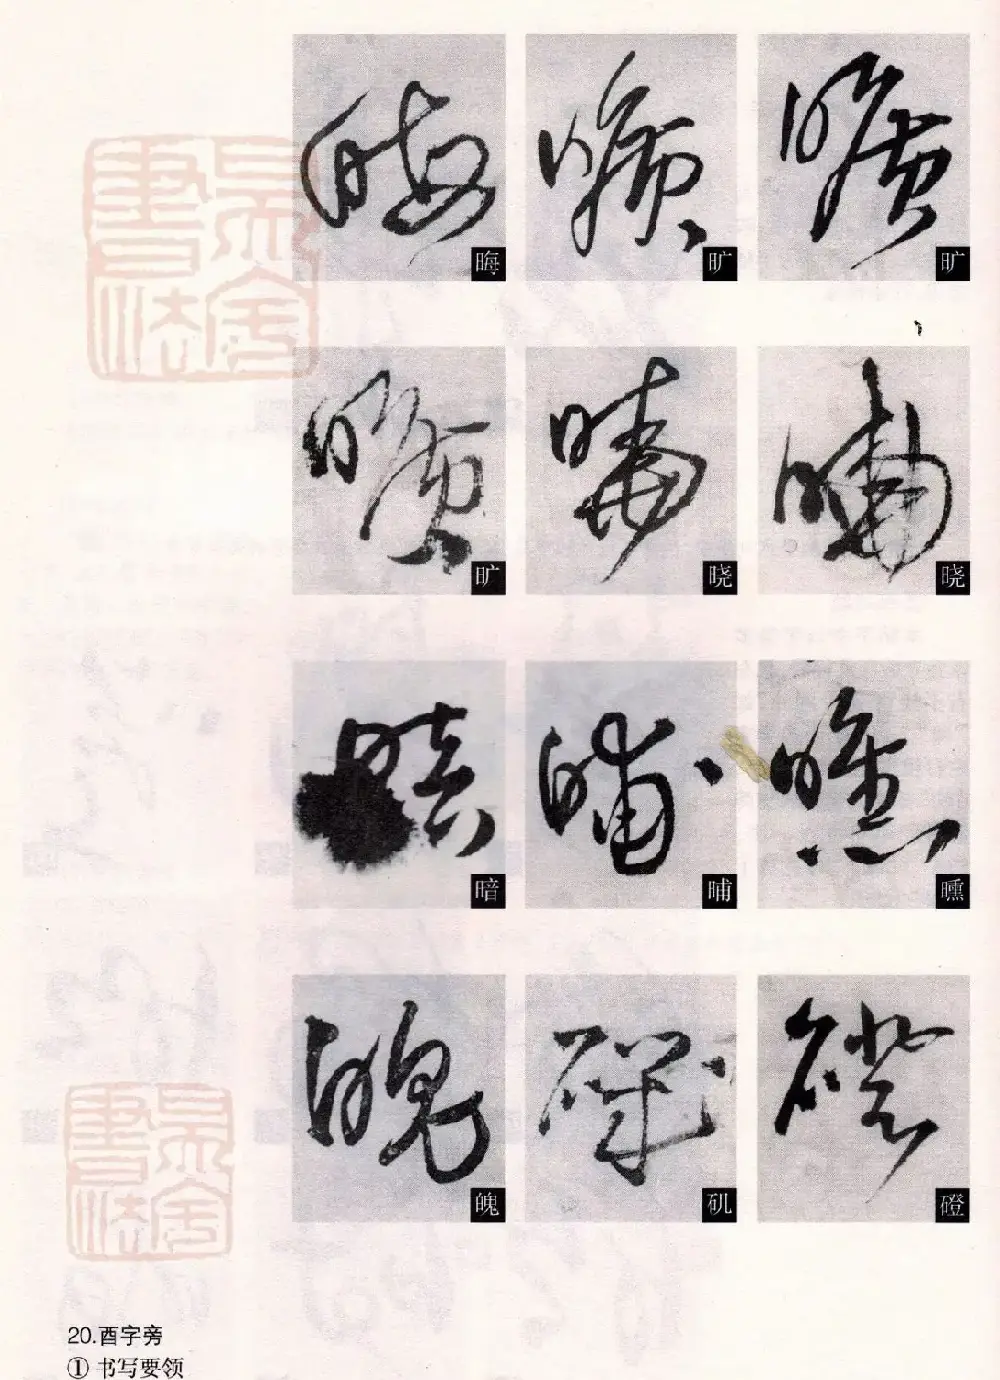 晦 旷 旷
旷 晓 晓
暗 晡 曛
魄 矶 磴
20.酉字旁
① 书写要领